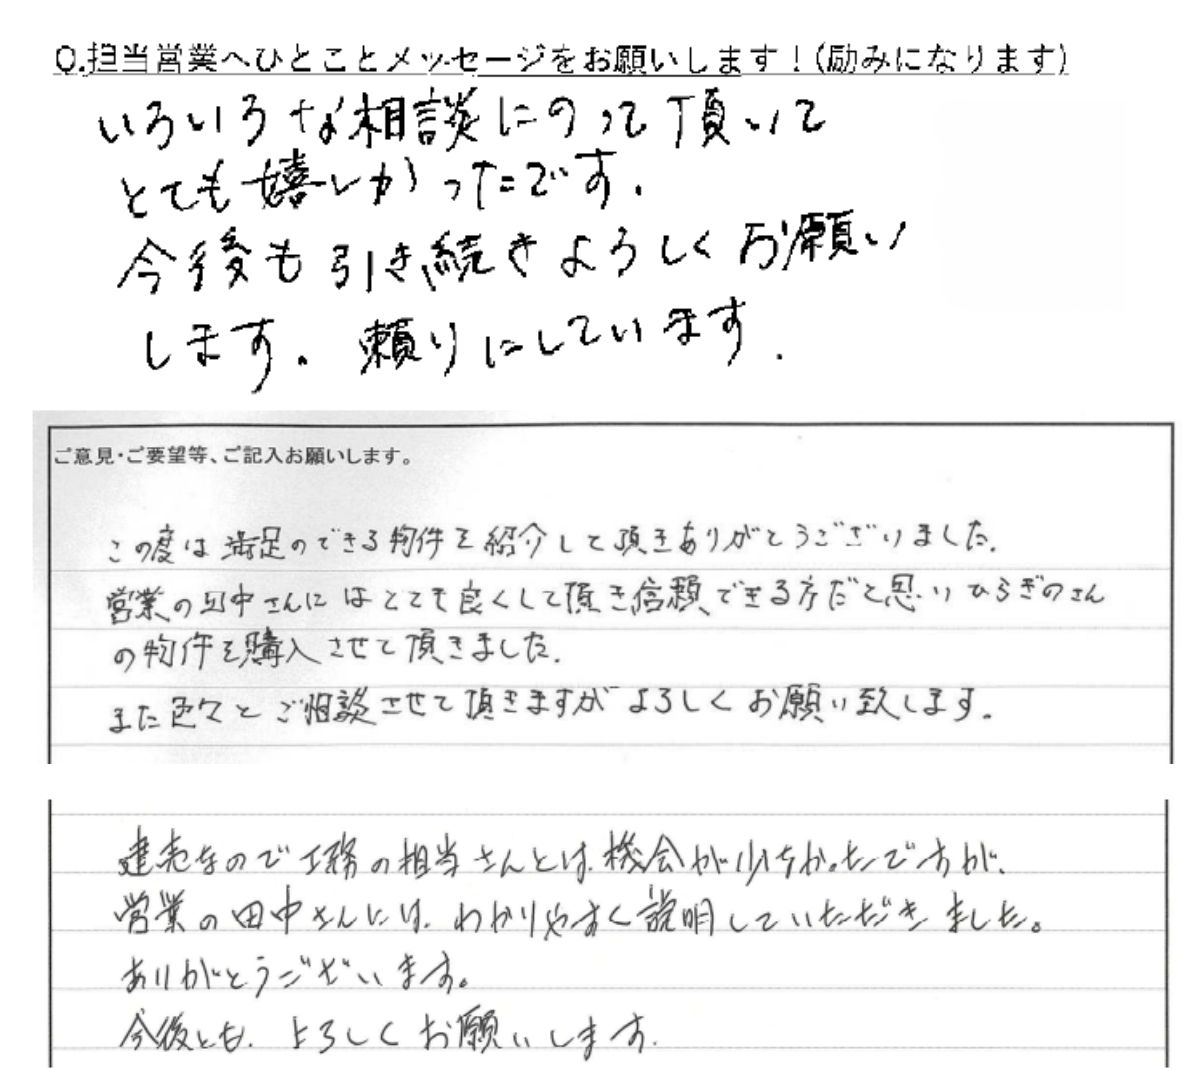 Q.担当営業へひとことメッセージをお願いします！(励みになります)
いろいろな相談にのって頂いて
とても嬉しかったです.
今後も引き続きよろしくお願い
します。頼りにしています.
ご意見・ご要望等、ご記入お願いします。
この度は満足のできる物件を紹介して頂きありがとうございました.
営業の田中さんにはとても良くして頂き信頼できる方だと思いひらぎのさん
の物件を購入させて頂きました.
また色々とご相談させて頂きますがよろしくお願い致します.
建売なので工務の担当さんとは、機会が少なかったですが、
営業の田中さんには、わかりやすく説明していただきました。
ありがとうございます。
今後とも、よろしくお願いします.